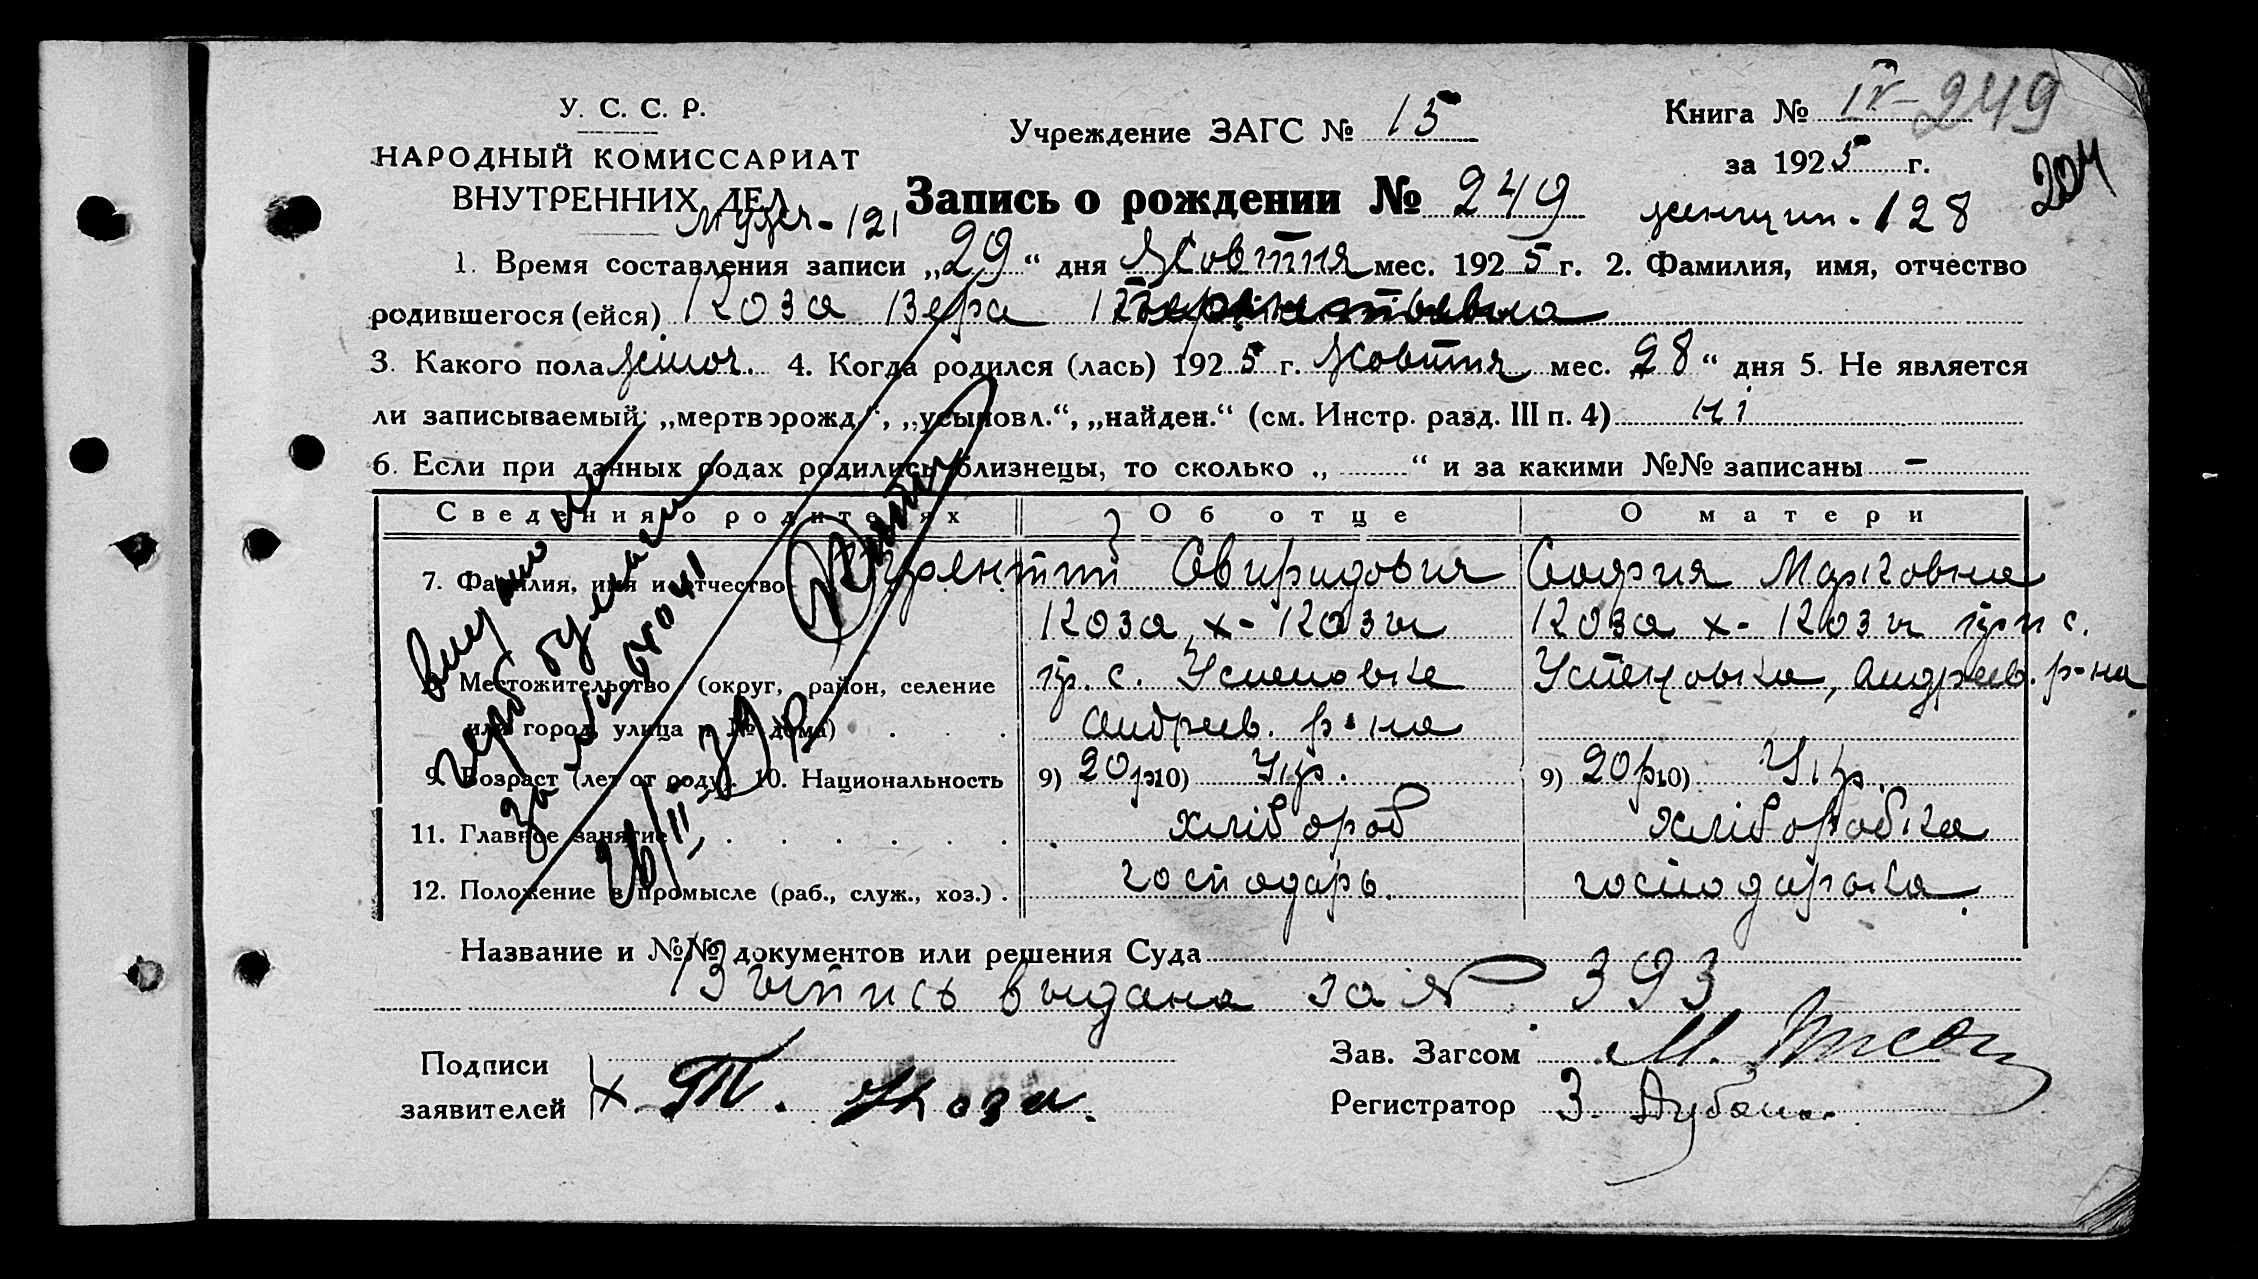 У. С. С. Р.
НАРОДНЫЙ КОМИССАРИАТ
ВНУТРЕННИХ ДЕЛ
Мужч-121
Учреждение ЗАГС № 15
Книга № IV-249
за 1925 г.
204
Запись о рождении № 249
женщин-128
1. Время составления записи „29“ дня Жовтня мес. 1925 г. 2. Фамилия, имя, отчество
родившегося (ейся) Коза Вера
3. Какого пола жіноч. 4. Когда родился (лась) 1925 г. Жовтня мес. „28“ дня 5. Не является
ли записываемый: „мертворожд.“, „усыновл.“, „найден.“ (см. Инстр. разд. III п. 4) ні
6. Если при данных родах родились близнецы, то сколько „ “ и за какими №№ записаны -
Сведения о родителях Об отце О матери
7. Фамилия, имя и отчество Свиридовия София Марковна
Коза х-Козы Коза х-Козы гр с.
8. Местожительство (округ, район, селение гр. с. Успеновка Успеновка, Андреев. р-на
или город, улица и № дома) Андреев. р-на
9. Возраст (лет от роду). 10. Национальность 9) 20р 10) Укр. 9) 20р 10) Укр.
11. Главное занятие хлібороб хліборобка
12. Положение в промысле (раб., служ., хоз.) господарь. господарька.
Название и №№ документов или решения Суда
Выпись выдана за № 393
Подписи
заявителей Т. Коза.
Зав. Загсом М.
Регистратор З.